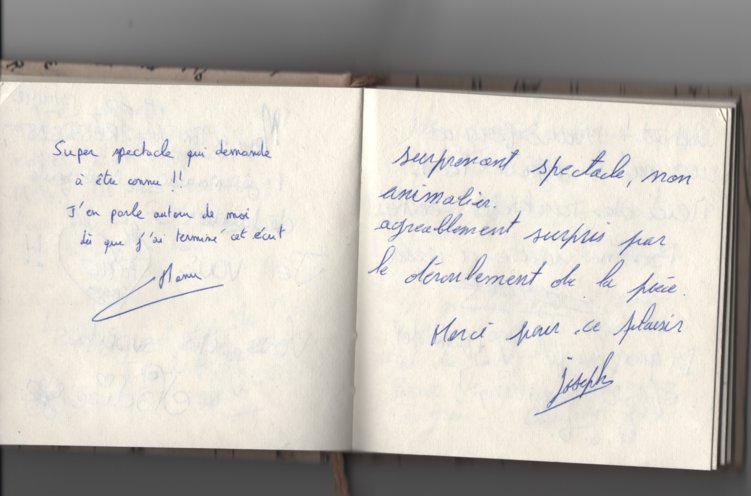 Super spectacle qui demande
à être connu !!
J'en parle autour de moi
dès que j'ai terminé cet écrit
Manu
surprenant spectacle, non
animalier.
agréablement surpris par
le déroulement de la pièce.
Merci pour ce plaisir
joseph